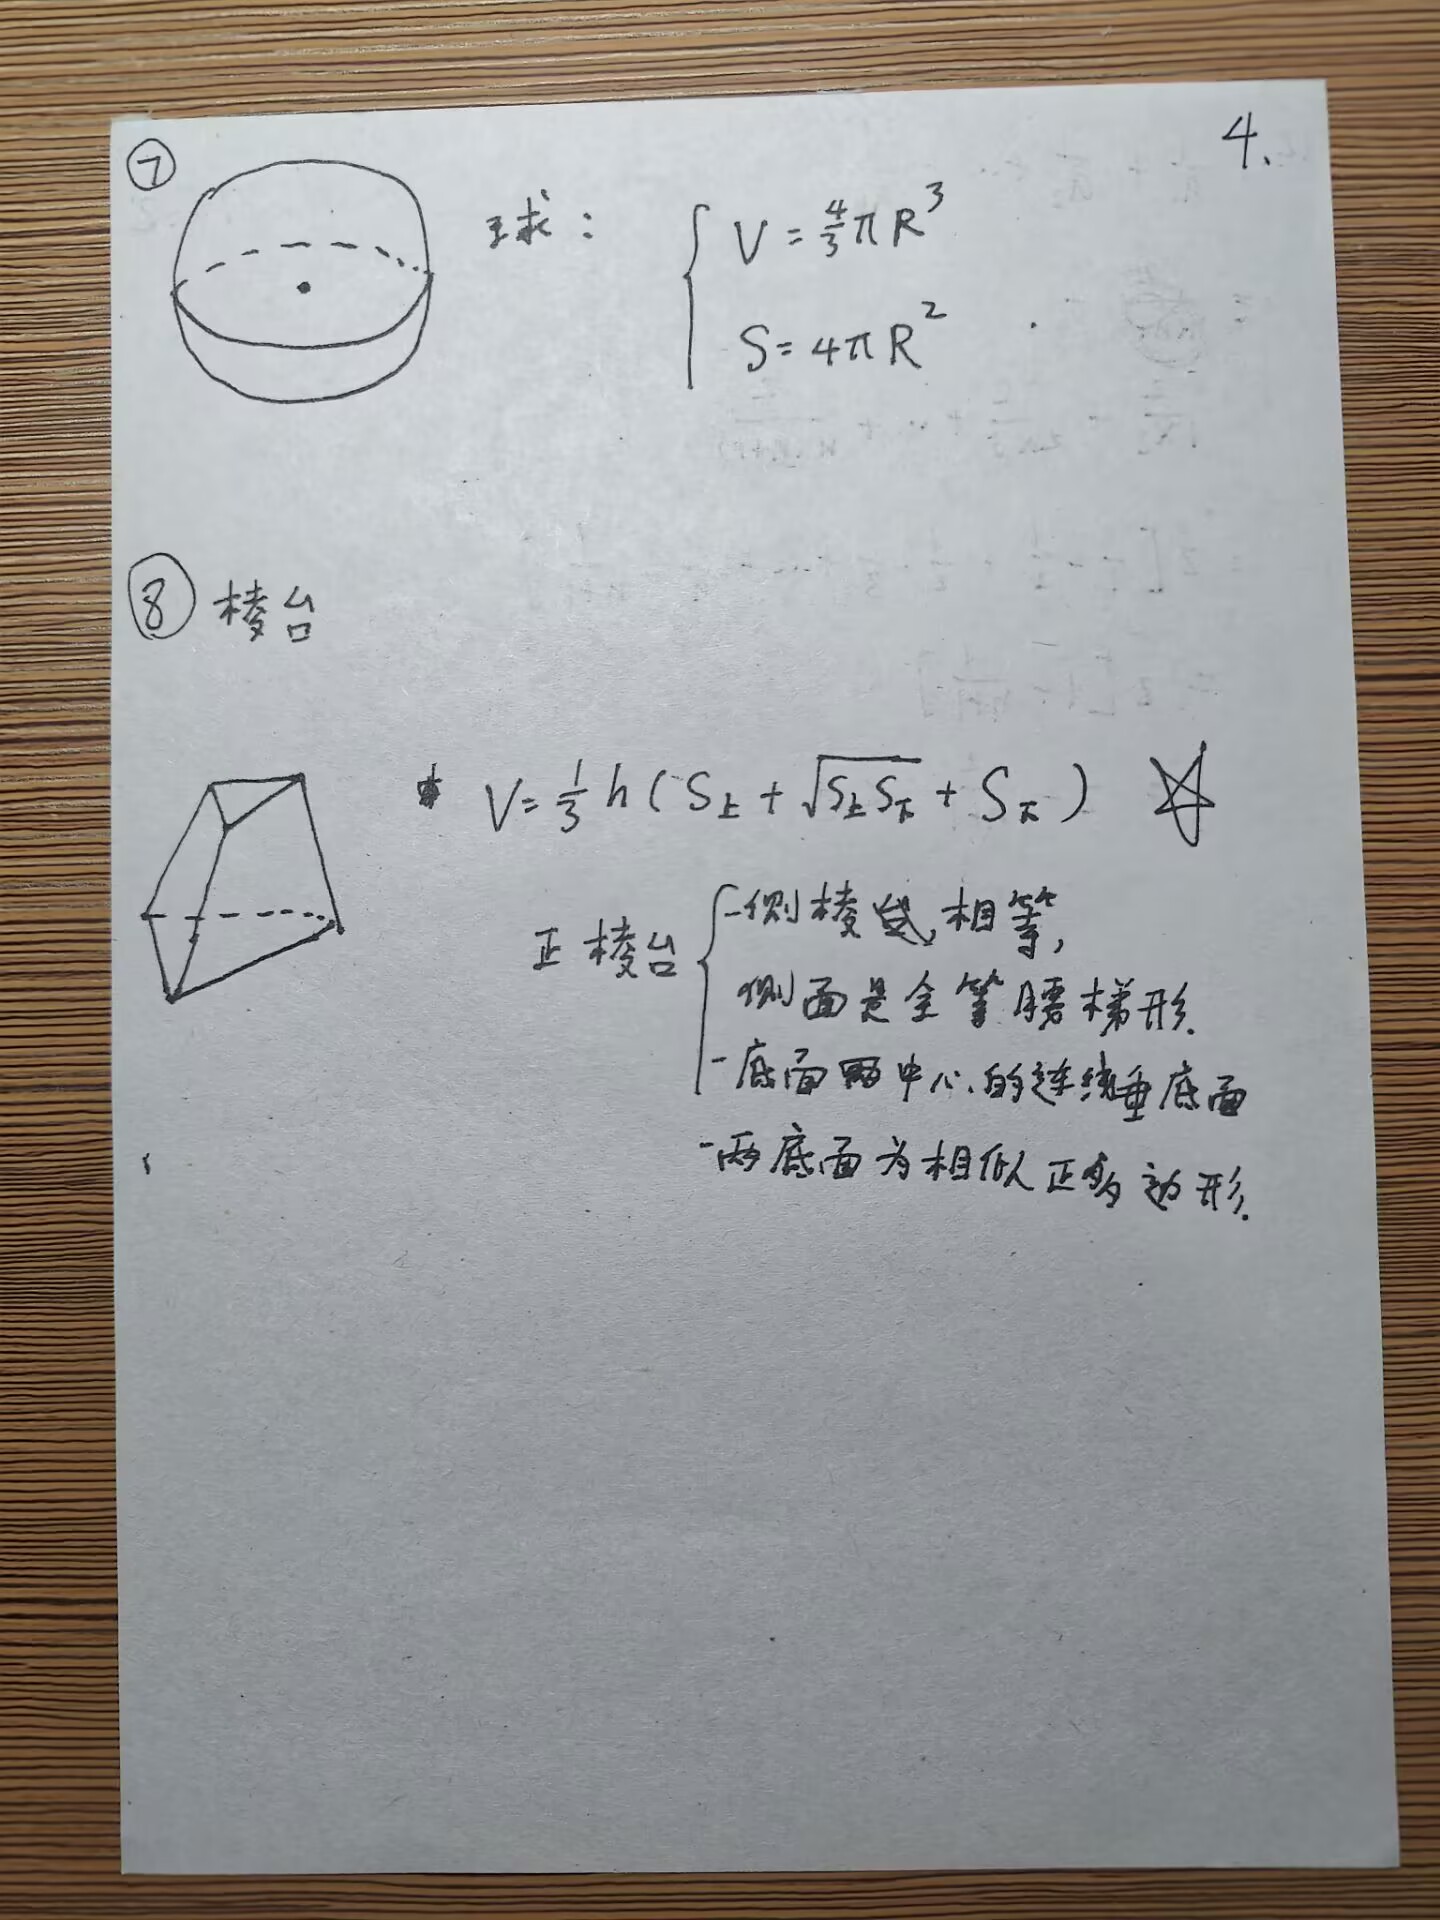 4.
⑦ 球: { V = 4/3 π R³
S = 4πR²
⑧ 棱台
V = 1/3 h ( S上 + √S上S下 + S下 ) ☆
正棱台 { - 侧棱 相等,
侧面是全等腰梯形.
- 底面 中心的连线垂底面
- 两底面为相似正多边形.